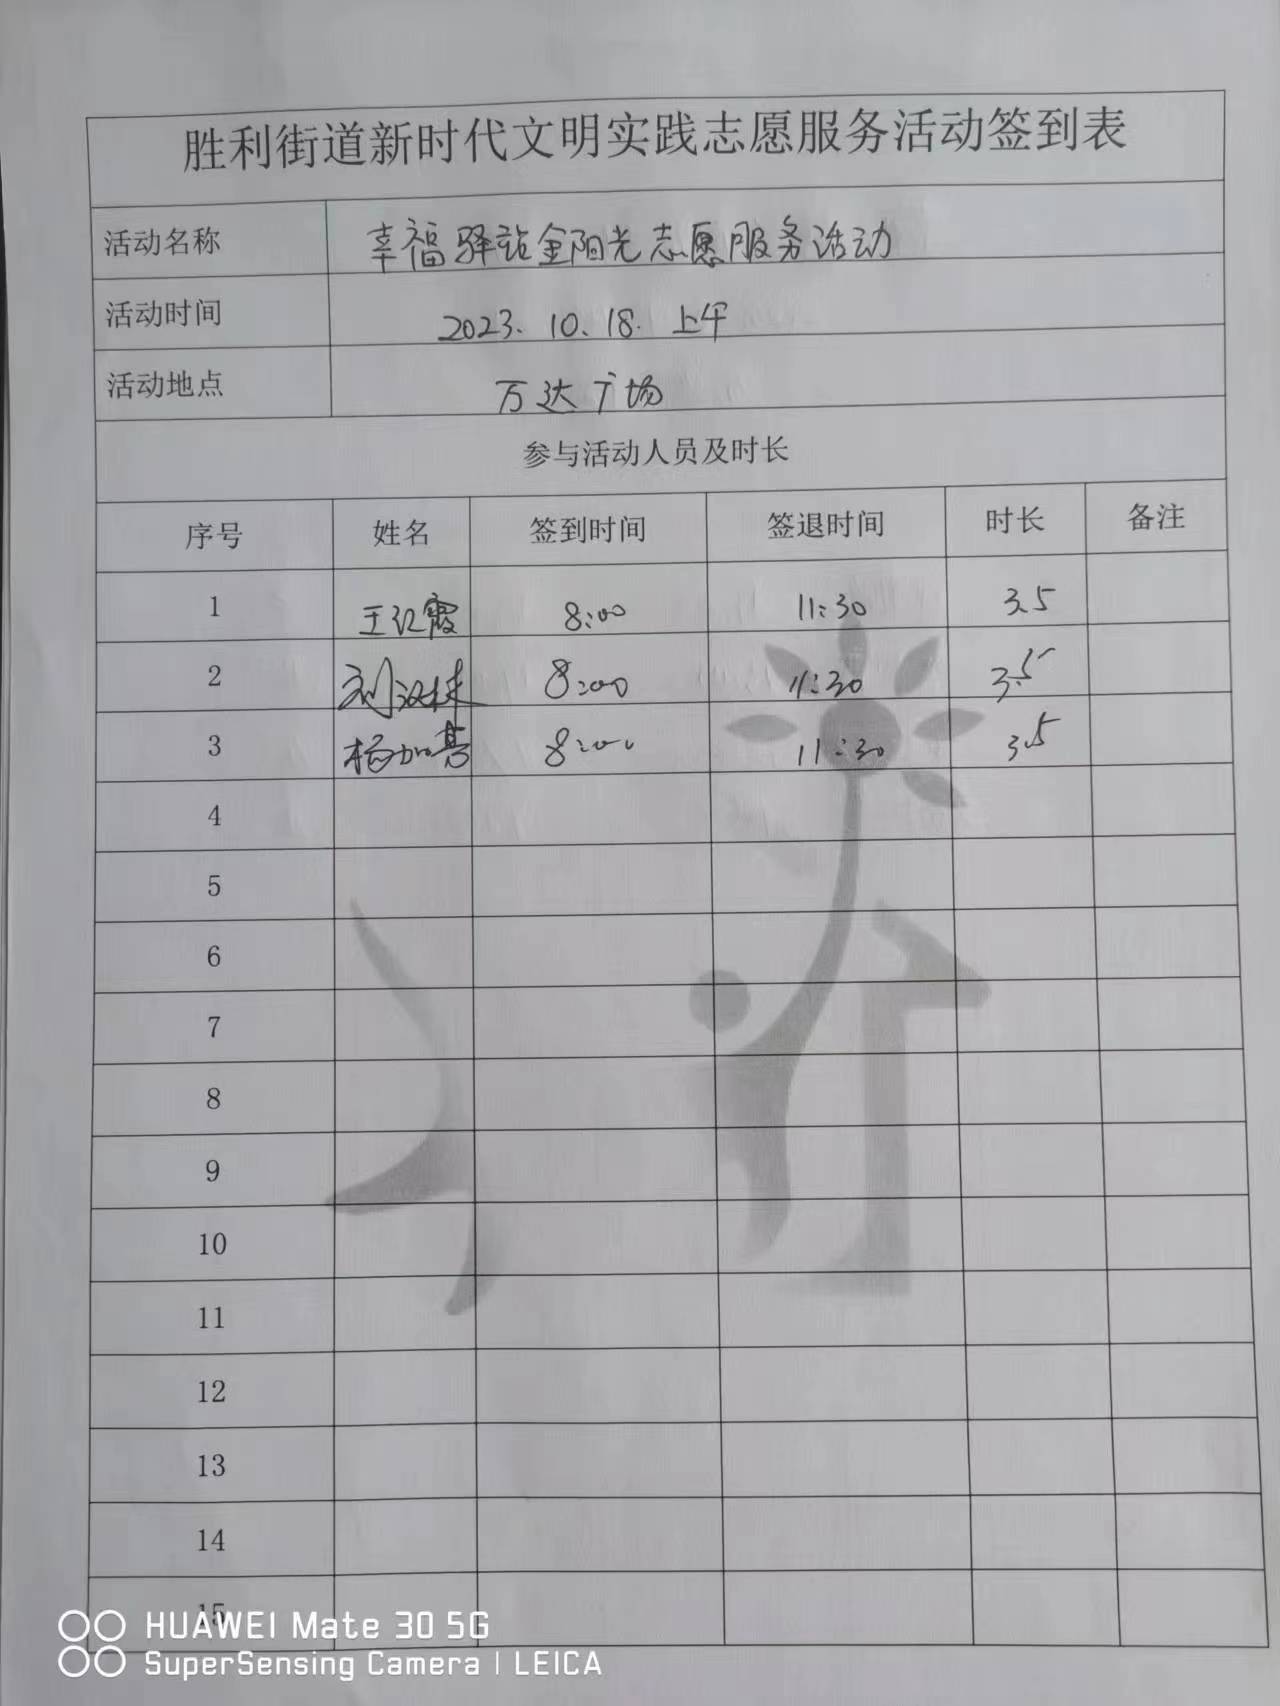 胜利街道新时代文明实践志愿服务活动签到表
活动名称 幸福驿站金阳光志愿服务活动
活动时间 2023.10.18.上午
活动地点 万达广场
参与活动人员及时长
序号 姓名 签到时间 签退时间 时长 备注
1 王红霞 8:00 11:30 3.5
2 8:00 11:30 3.5
3 杨加喜 8:00 11:30 3.5
4
5
6
7
8
9
10
11
12
13
14
15
HUAWEI Mate 30 5G
SuperSensing Camera | LEICA